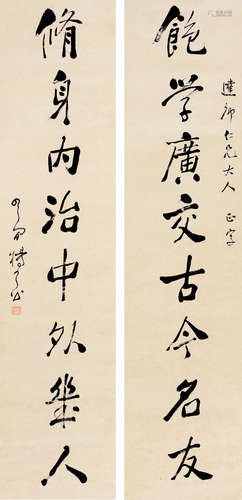 卿仁兄大人 正字
飽学廣交古今名友
脩身内治中外幾人